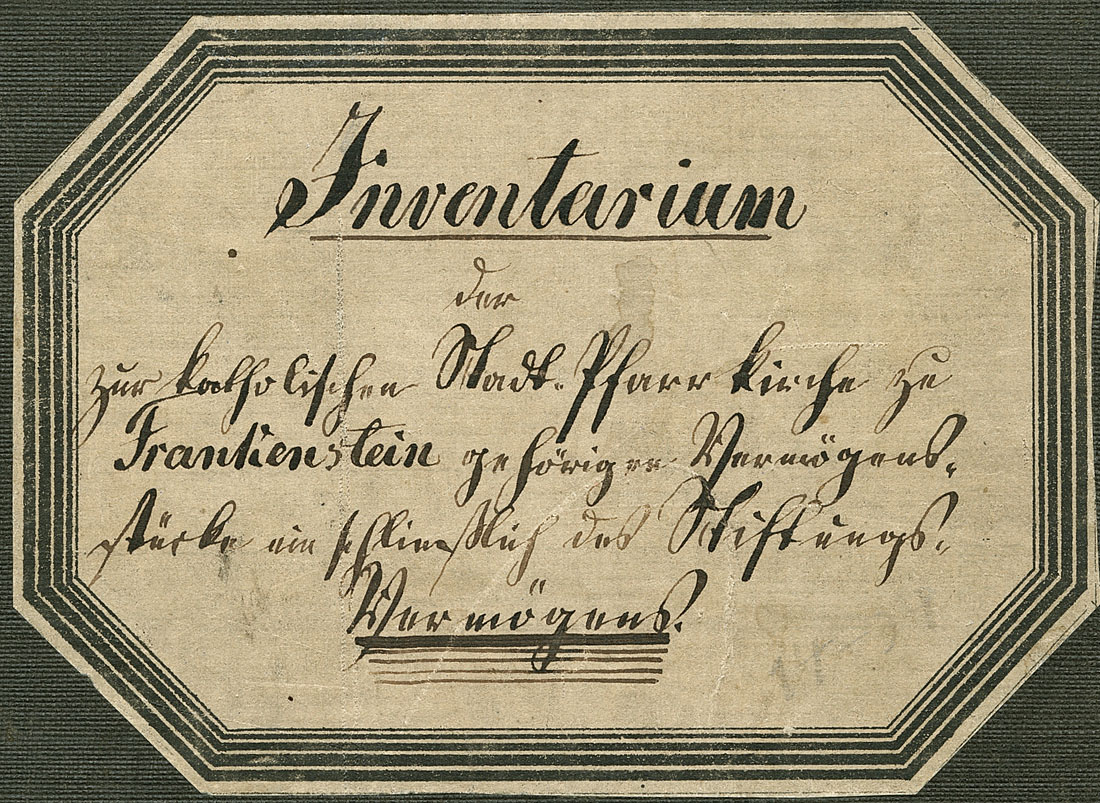 Inventarium
der
zur katholischen Stadt-Pfarrkirche zu
Frankenstein gehörigen Vermögens-
stücke einschließlich des Stiftungs-
Vermögens.